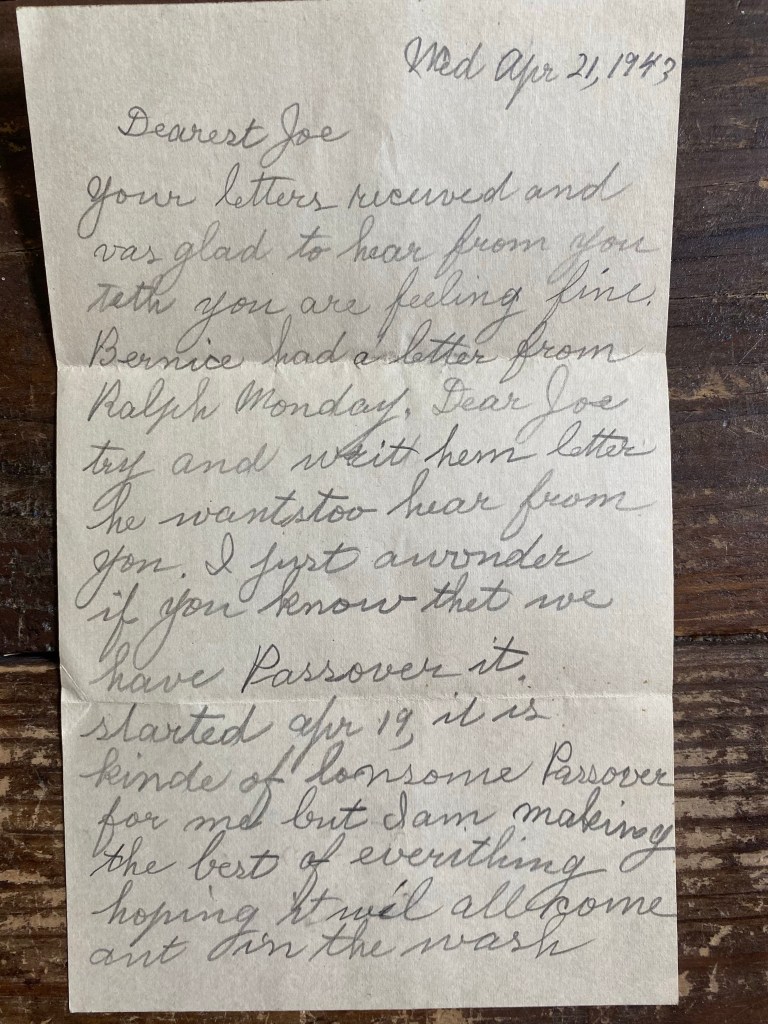 Wed Apr 21, 1943
Dearest Joe
Your letters received and
vas glad to hear from you
teth you are feeling fine.
Bernice had a letter from
Ralph Monday. Dear Joe
try and writt hem letter
he wants too hear from
you. I just awonder
if you know thet we
have Passover it.
started apr 19, it is
kinde of lonsome Passover
for me but I am making
the best of everithing
hoping it wil all come
out in the wash